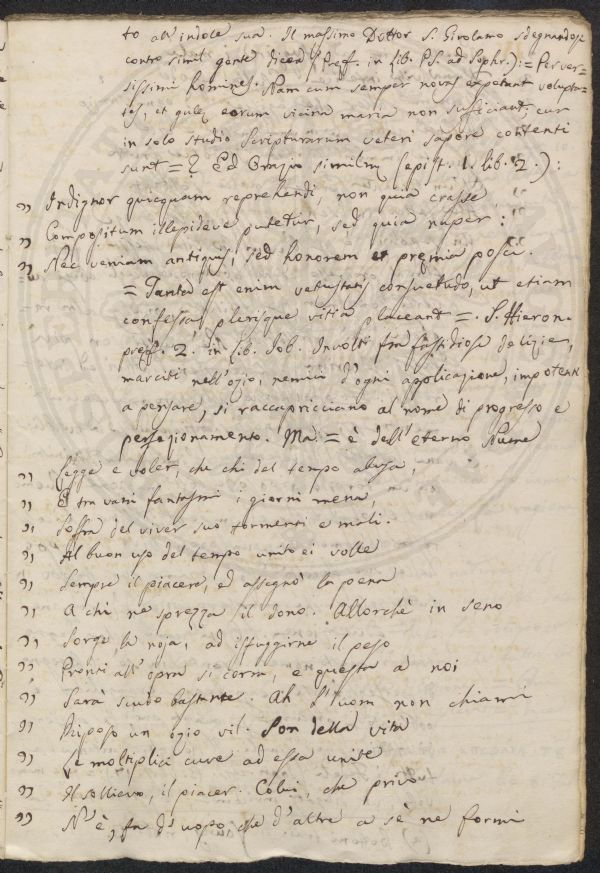 to all'indole sua. Il massimo Dottor S. Girolamo sdegnandosi
contro simil gente dicea (Pref. in lib. PS. ad Sophr.): = Perver-
sissimi homines. Nam cum semper novas expetant volupta-
tes, et gulę eorum vicina maria non sufficiant, cur
in solo studio Scripturarum veteri sapore contenti
sunt = ? Ed Orazio similm (epist. 1. lib. 2.):
„ Indignor quicquam reprehendi, non quia crasse
„ Compositum illepideve putetur, sed quia nuper:
„ Nec veniam antiquis, sed honorem et pręmia posci.
= Tanta est enim vetustatis consuetudo, ut etiam
confessa plerisque vitia placeant =. S. Hieron.
pręf. 2. in lib. Job. Involti fra fastidiose delizie,
marciti nell'ozio, nemici d'ogni applicazione, impotenti
a pensare, si raccapricciano al nome di progresso e
perfezionamento. Ma = è dell'eterno Nume
„ Legge e voler, che chi del tempo abusa,
„ E tra vani fantasmi i giorni mena,
„ Soffra del viver suo tormenti e mali.
„ Al buon uso del tempo unito ei volle
„ Sempre il piacere, ed assegnò la pena
„ A chi ne sprezza il dono. Allorchè in seno
„ Sorge la noja, ad isfuggirne il peso
„ Pronti all'opra si corra, e questa a noi
„ Sarà scudo bastante. Ah l'uom non chiami
„ Riposo un ozio vil. Son della vita
„ Le moltiplici cure ad essa unite
„ Il sollievo, il piacer. Colui, che privo
„ N'è, fa d'uopo che d'altre a sè ne formi